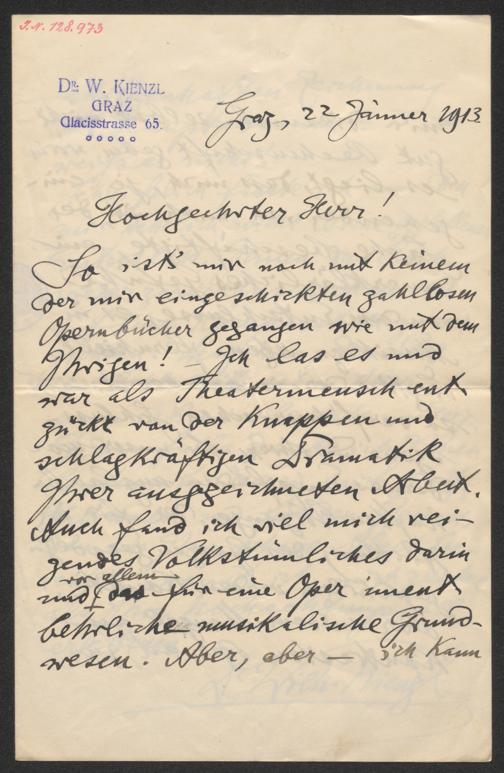 I.N. 128.973
Dr. W. KIENZL
GRAZ
Glacisstrasse 65.
Graz, 22 Jänner 1913
Hochgeehrter Herr!
So ist's mir noch mit keinem
der mir eingeschickten zahllosen
Opernbücher gegangen wie mit dem
Ihrigen! – Ich las es und
war als Theatermensch ent
zückt von der knappen und
schlagkräftigen Dramatik
Ihrer ausgezeichneten Arbeit.
Auch fand ich viel mich rei-
zendes Volkstümliches darin
vor allem
und das für eine Oper unent
behrliche musikalische Grund-
wesen. Aber, aber – ich kann